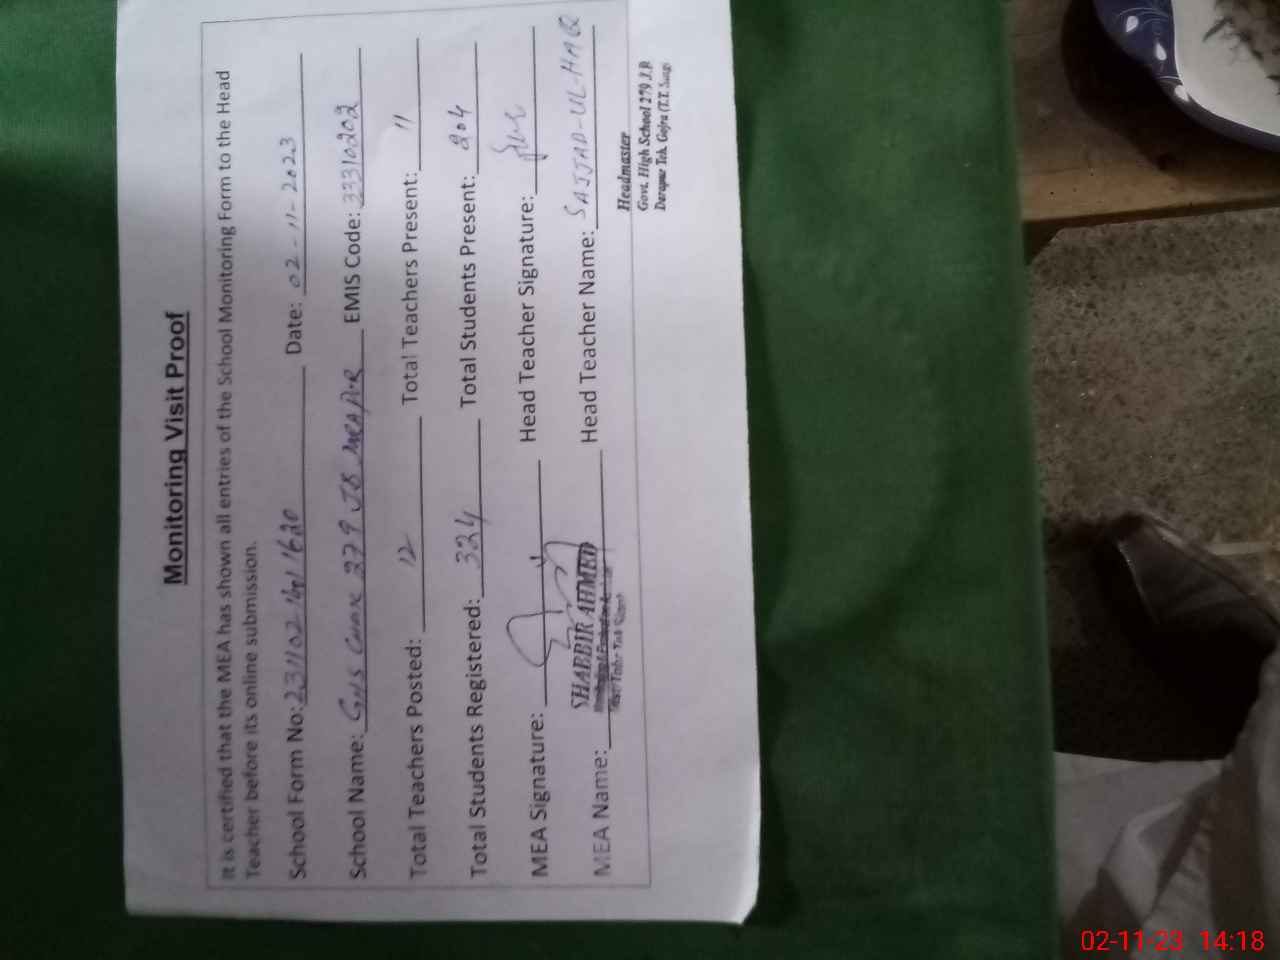 Monitoring Visit Proof
It is certified that the MEA has shown all entries of the School Monitoring Form to the Head
Teacher before its online submission.
School Form No: Date: 02-11-2023
School Name: GHS 279 JB EMIS Code: 33310202
Total Teachers Posted: 12 Total Teachers Present: 11
Total Students Registered: 324 Total Students Present: 204
MEA Signature: Head Teacher Signature:
MEA Name: SHABBIR AHMED Head Teacher Name: SAJJAD-UL-HAQ
Headmaster
Govt. High School 279 J.B
Tek. Gojra (T.T. Singh)
02-11-23 14:18